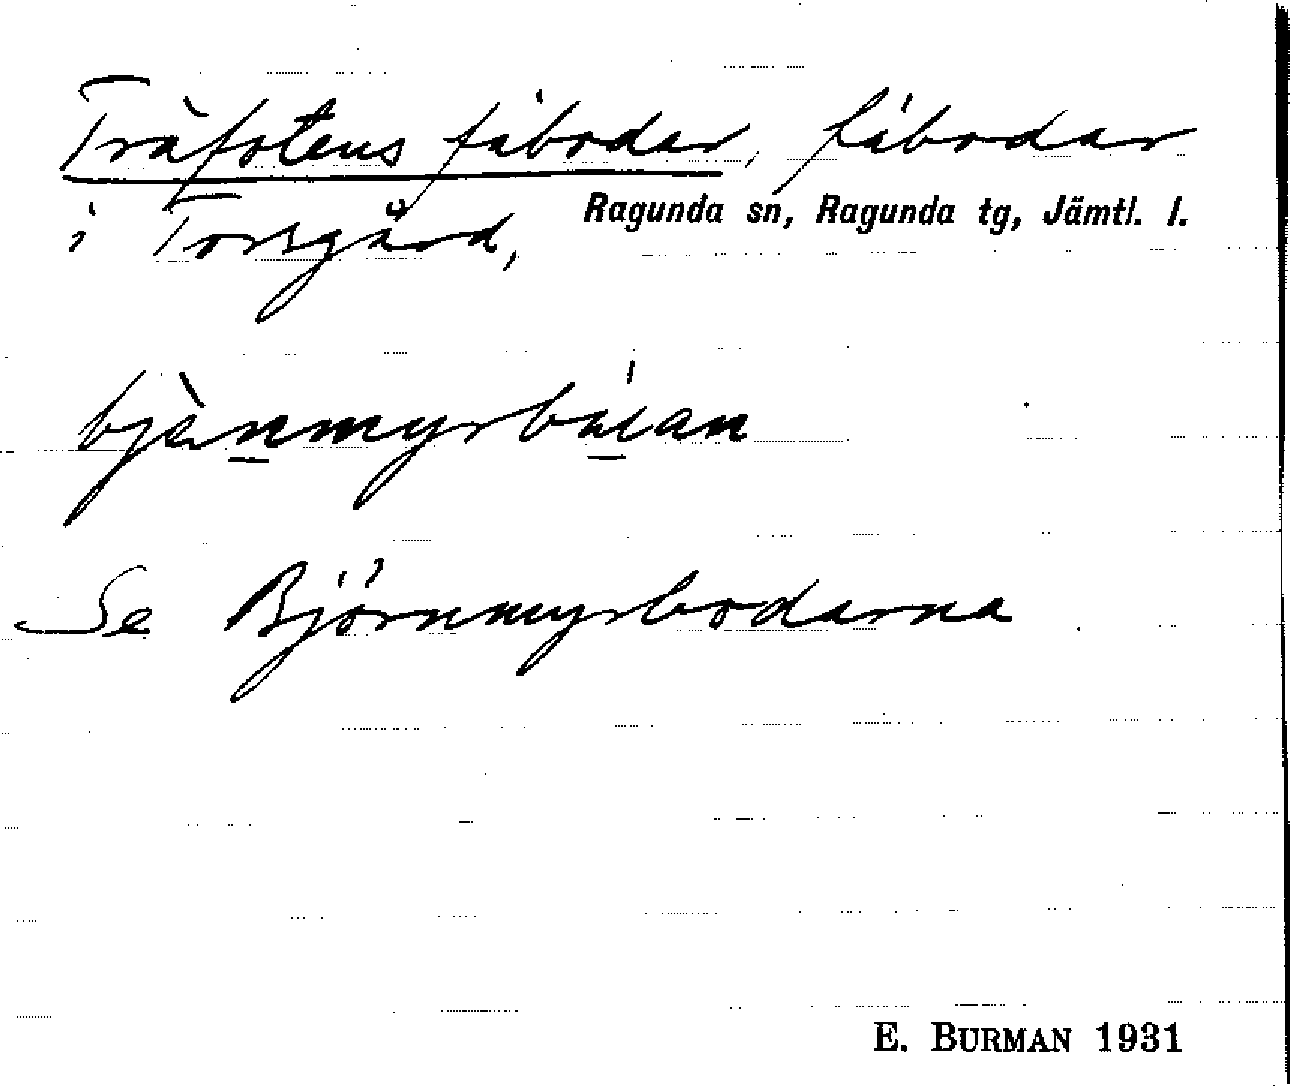 Träfotens fäbodar, fäbodar
i Torsgård, Ragunda sn, Ragunda tg, Jämtl. l.
Se Björnmyrbodarna
E. BURMAN 1931